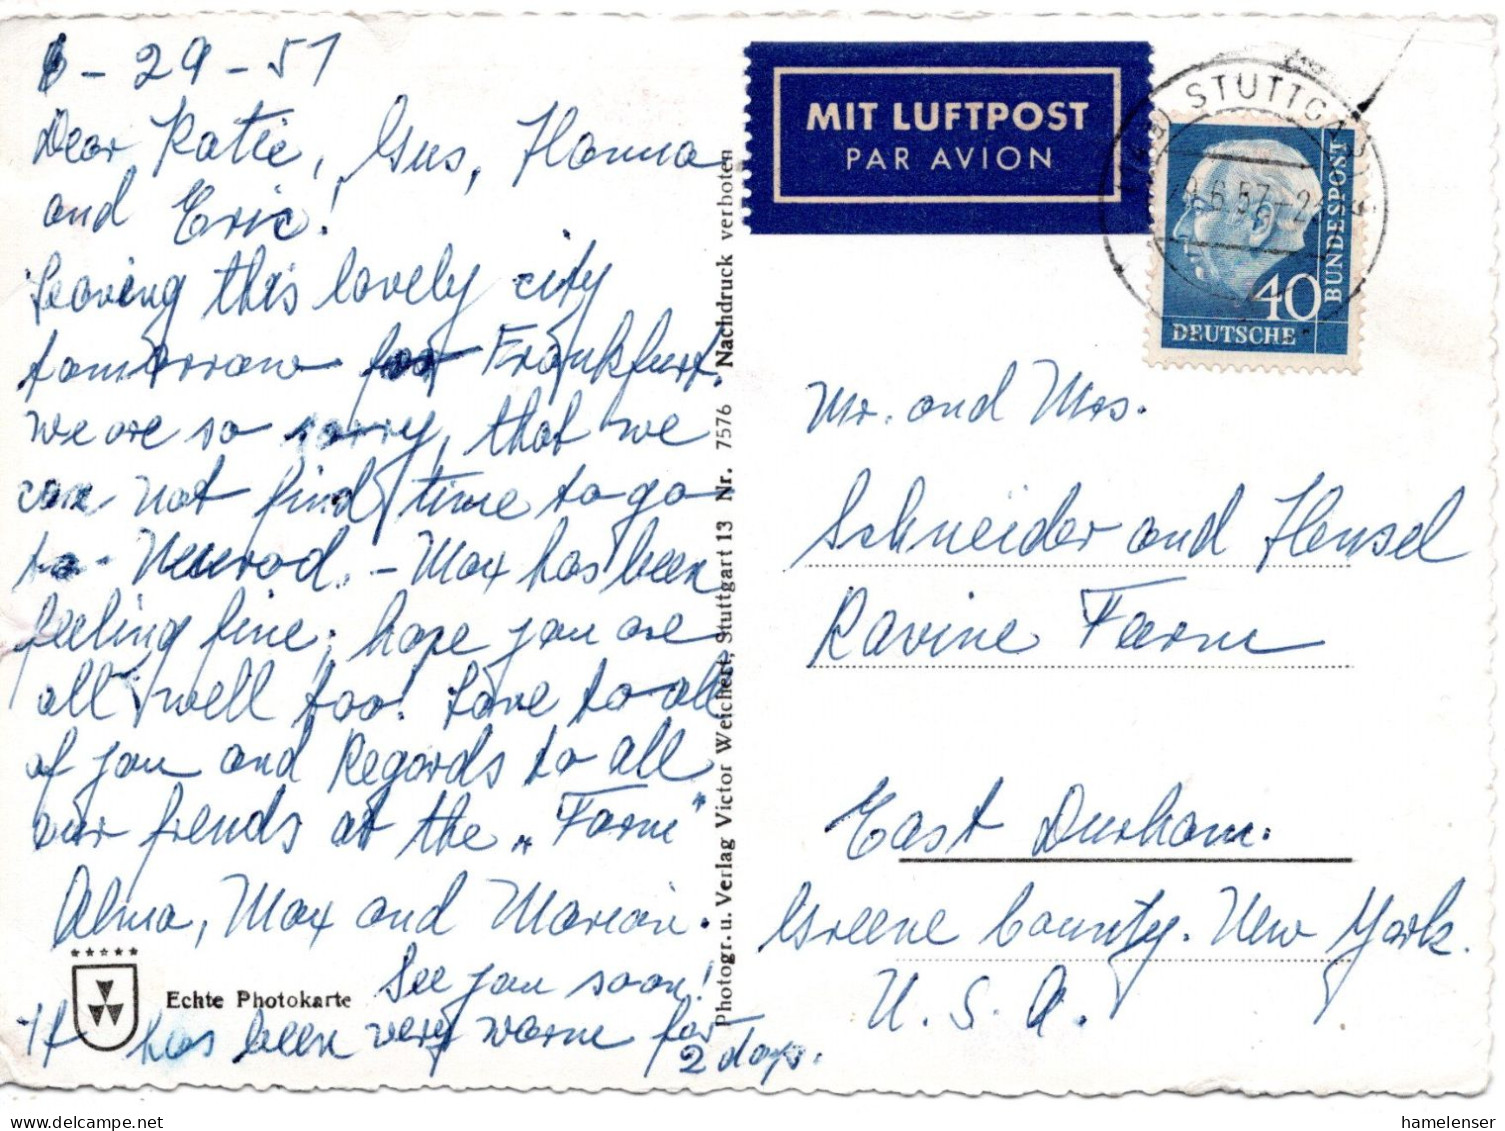 6 - 29 - 57
Dear Katie, Gus, Hanna
and Eric!
Leaving this lovely city
tomorrow for Frankfurt.
We are so sorry, that we
can not find time to go
to
- Max has been
feeling fine; hope you are
all well too! Love to all
of you and Regards to all
our friends at the „Farm"
Alma, Max and Marion.
See you soon!
It has been very warm for
2 days.
Echte Photokarte
Photogr. u. Verlag Victor Weichert, Stuttgart 13 Nr. 7576 Nachdruck verboten
MIT LUFTPOST
PAR AVION
STUTTGART
.6.57-2
40
DEUTSCHE
BUNDESPOST
Mr. and Mrs.
Schneider and Hensel
Ravine Farm
East Durham.
Greene County. New York.
U. S. A.
hamelenser